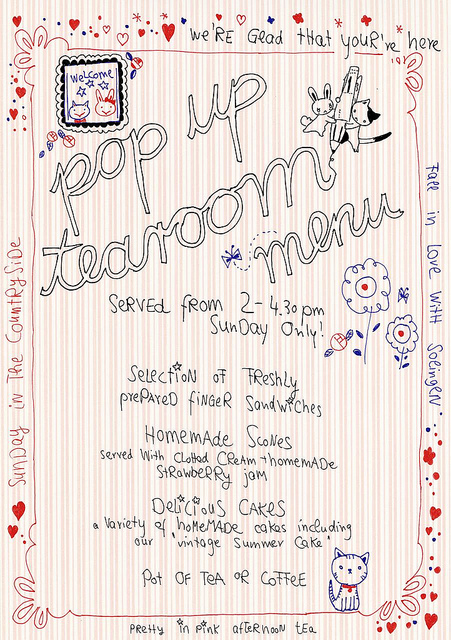 We're Glad that you'r've here
Welcome
pop up
tearoom
menu
Served from 2-4.30 pm
Sunday Only!
Selection of Freshly
prepared finger Sandwiches
Homemade Scones
Served With Clotted Cream + homemade
Strawberry jam
Delicious Cakes
a Variety of homemade cakes including
our 'vintage Summer Cake'
Pot Of Tea Or Coffee
pretty in pink afternoon tea
Sunday in The CountrySide
Fall in Love With Soeingen